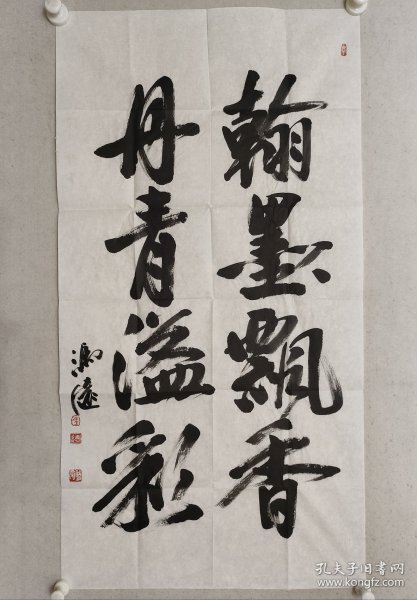 翰墨飘香
丹青溢彩
孔夫子旧书网
www.kongfz.com